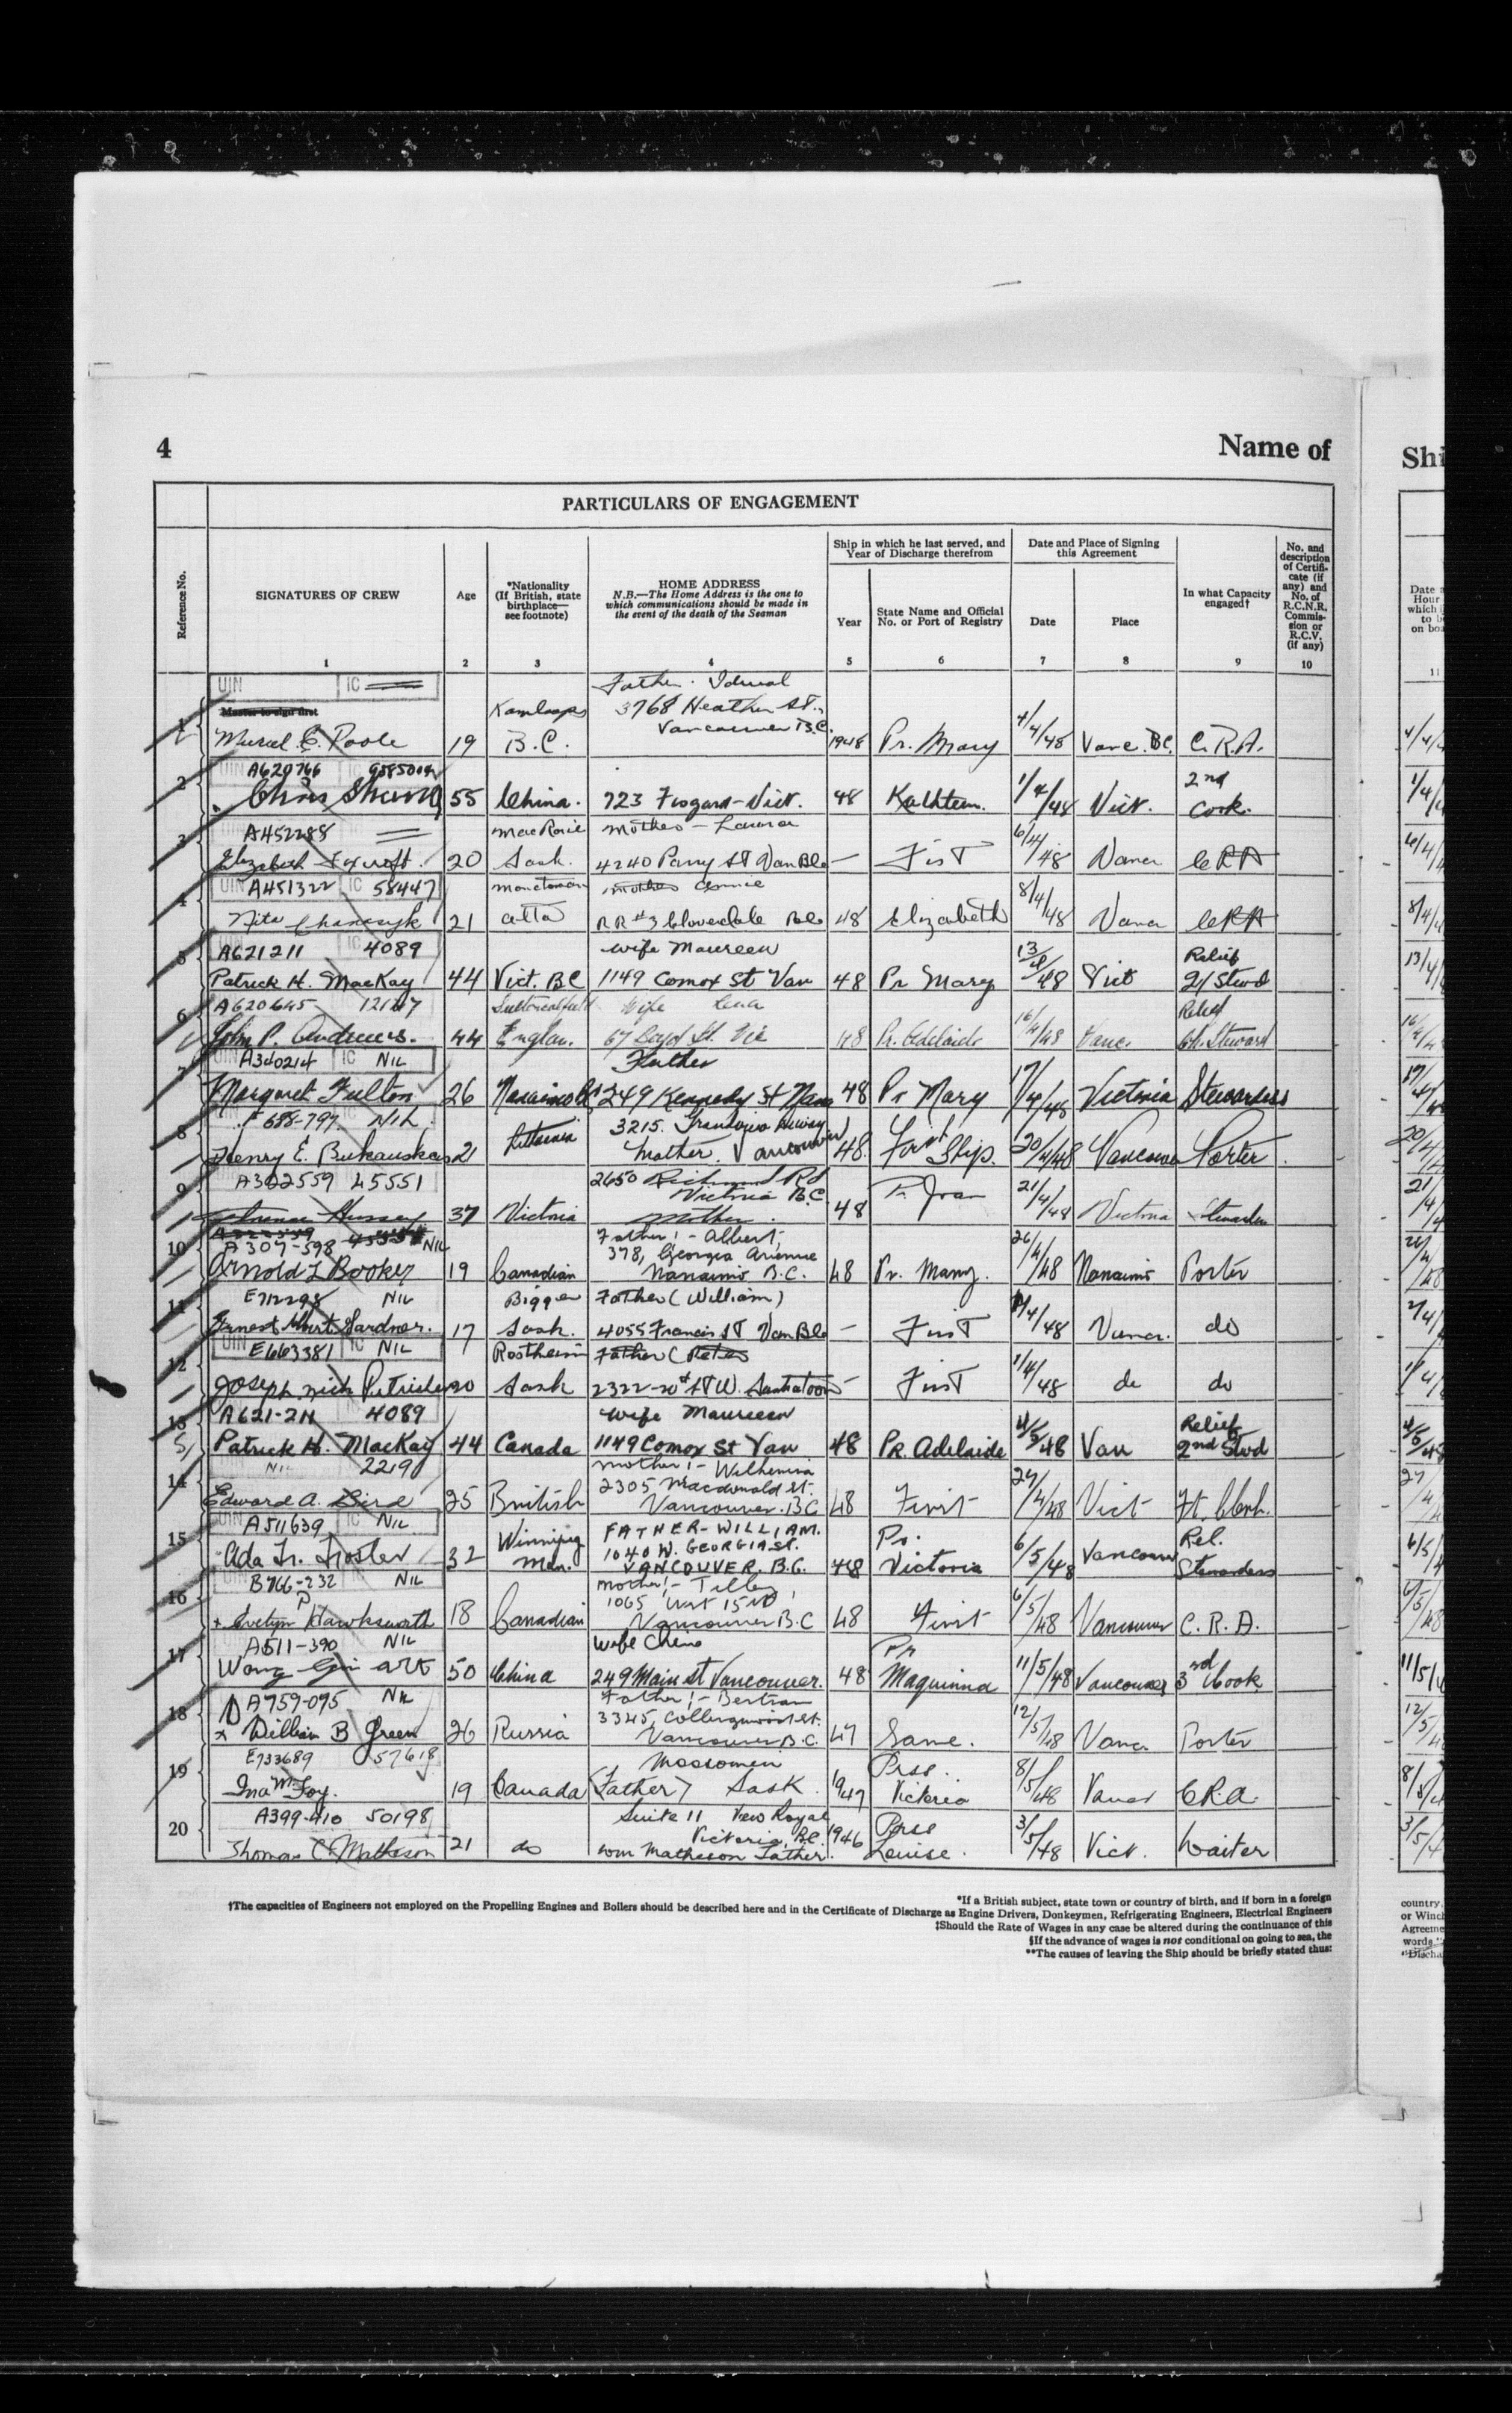 4
Name of
Shi
PARTICULARS OF ENGAGEMENT
Reference No.
SIGNATURES OF CREW
Age
*Nationality
(If British, state
birthplace—
see footnote)
HOME ADDRESS
N.B.—The Home Address is the one to
which communications should be made in
the event of the death of the Seaman
Ship in which he last served, and
Year of Discharge therefrom
Year
State Name and Official
No. or Port of Registry
Date and Place of Signing
this Agreement
Date
Place
In what Capacity
engaged†
No. and
description
of Certifi-
cate (if
any) and
No. of
R.C.N.R.
Commis-
sion or
R.C.V.
(if any)
1 2 3 4 5 6 7 8 9 10
UIN IC Father
Master to sign first Kamloops 3768 Heather St.,
Vancouver B.C.
1 Muriel C. Poole 19 B.C. 1948 Pr. Mary 1/4/48 Vanc. B.C. C.R.A.
A620766 2nd
2 Chris Shung 55 China. 723 Fisgard-Vict. 48 Kathleen. 1/4/48 Vict. Cook.
A452288 Mother - Laura
3 Elizabeth 20 Sask. 4240 Parry ST Van BC — First 6/4/48 Vancr CRA
UIN A451322 IC 58447 Mother Annie
4 21 Alta RR #3 Cloverdale BC 48 Elizabeth 8/4/48 Vancr CRA
A621211 4089 Wife Maureen Relief
5 Patrick H. MacKay 44 Vict. BC 1149 Comox St Van 48 Pr Mary 13/4/48 Vict 2/Stwd
A620645 12127 Wife Lena Relief
6 John P. Andrews. 44 Englan. 67 St. Vic 48 Pr. Adelaide 16/4/48 Vanc. Ch. Steward
A340214 IC NIL Father
7 Margaret Fulton 26 Nanaimo BC 249 Kennedy St Nana 48 Pr Mary 17/4/48 Victoria Stewardess
688-797 NIL 3215 Grandview Hiway
8 Henry E. Bukauskas 21 Lithuania Mother. Vancouver 48. First Ship. 20/4/48 Vancouver Porter.
A302559 45551 2650 Richmond Rd
Victoria B.C.
9 Hussey 37 Victoria Mother. 48 Pr Joan 21/4/48 Victoria
A307-598 NIL Father:- Albert,
378, Georgia Avenue
10 Arnold L Booker 19 Canadian Nanaimo B.C. 48 Pr. Mary. 26/4/48 Nanaimo Porter
E712298 NIL Biggar Father (William)
11 Ernest Albert Gardner. 17 Sask. 4055 Francis ST Van BC — First 1/4/48 Vancr. do
UIN E663381 IC NIL Rosthern Father (Peter)
12 Joseph Nick 20 Sask 2322-20th ST W. Saskatoon — First 1/4/48 do do
A621-211 4089 Wife Maureen Relief
13 Patrick H. MacKay 44 Canada 1149 Comox St Van 48 Pr. Adelaide 4/5/48 Van 2nd Stwd
NIL 2219 Mother:- Wilhemina
2305 Macdonald St.
14 Edward A. Bird 25 British Vancouver. B.C 48 First 27/4/48 Vict Ft. Clerk.
UIN A511639 IC NIL Winnipeg FATHER-WILLIAM. Pr. Rel.
1040 W. GEORGIA ST.
15 Ada Tr. Troster 32 Man. VANCOUVER. B.C. 48 Victoria 6/5/48 Vancouver Stewardess
B766-232 NIL Mother:- Tilley
1065 West 15th
16 Evelyn P Hawksworth 18 Canadian Vancouver B.C 48 First 6/5/48 Vancouver C.R.A.
A511-390 NIL Wife Pr
17 Wong Gin art 50 China 249 Main st Vancouver. 48 Maquinna 11/5/48 Vancouver 3rd Cook
A759-095 NIL Father:- Bertram
3345, Collingwood St.
18 William B Green 26 Russia Vancouver B.C. 47 Same. 12/5/48 Vancr Porter
E733689 57618 Moosomin Prss.
19 Ina M. Foy. 19 Canada (Father) Sask. 1947 Victoria 8/5/48 Vancr C.R.A.
A399-410 50198 Suite 11 View Royal Prss
Victoria, B.C.
20 Thomas C. Matheson 21 do Wm Matheson Father. 1946 Louise. 3/5/48 Vict. Waiter
*If a British subject, state town or country of birth, and if born in a foreign
†The capacities of Engineers not employed on the Propelling Engines and Boilers should be described here and in the Certificate of Discharge as Engine Drivers, Donkeymen, Refrigerating Engineers, Electrical Engineers
‡Should the Rate of Wages in any case be altered during the continuance of this
§If the advance of wages is not conditional on going to sea, the
**The causes of leaving the Ship should be briefly stated thus: